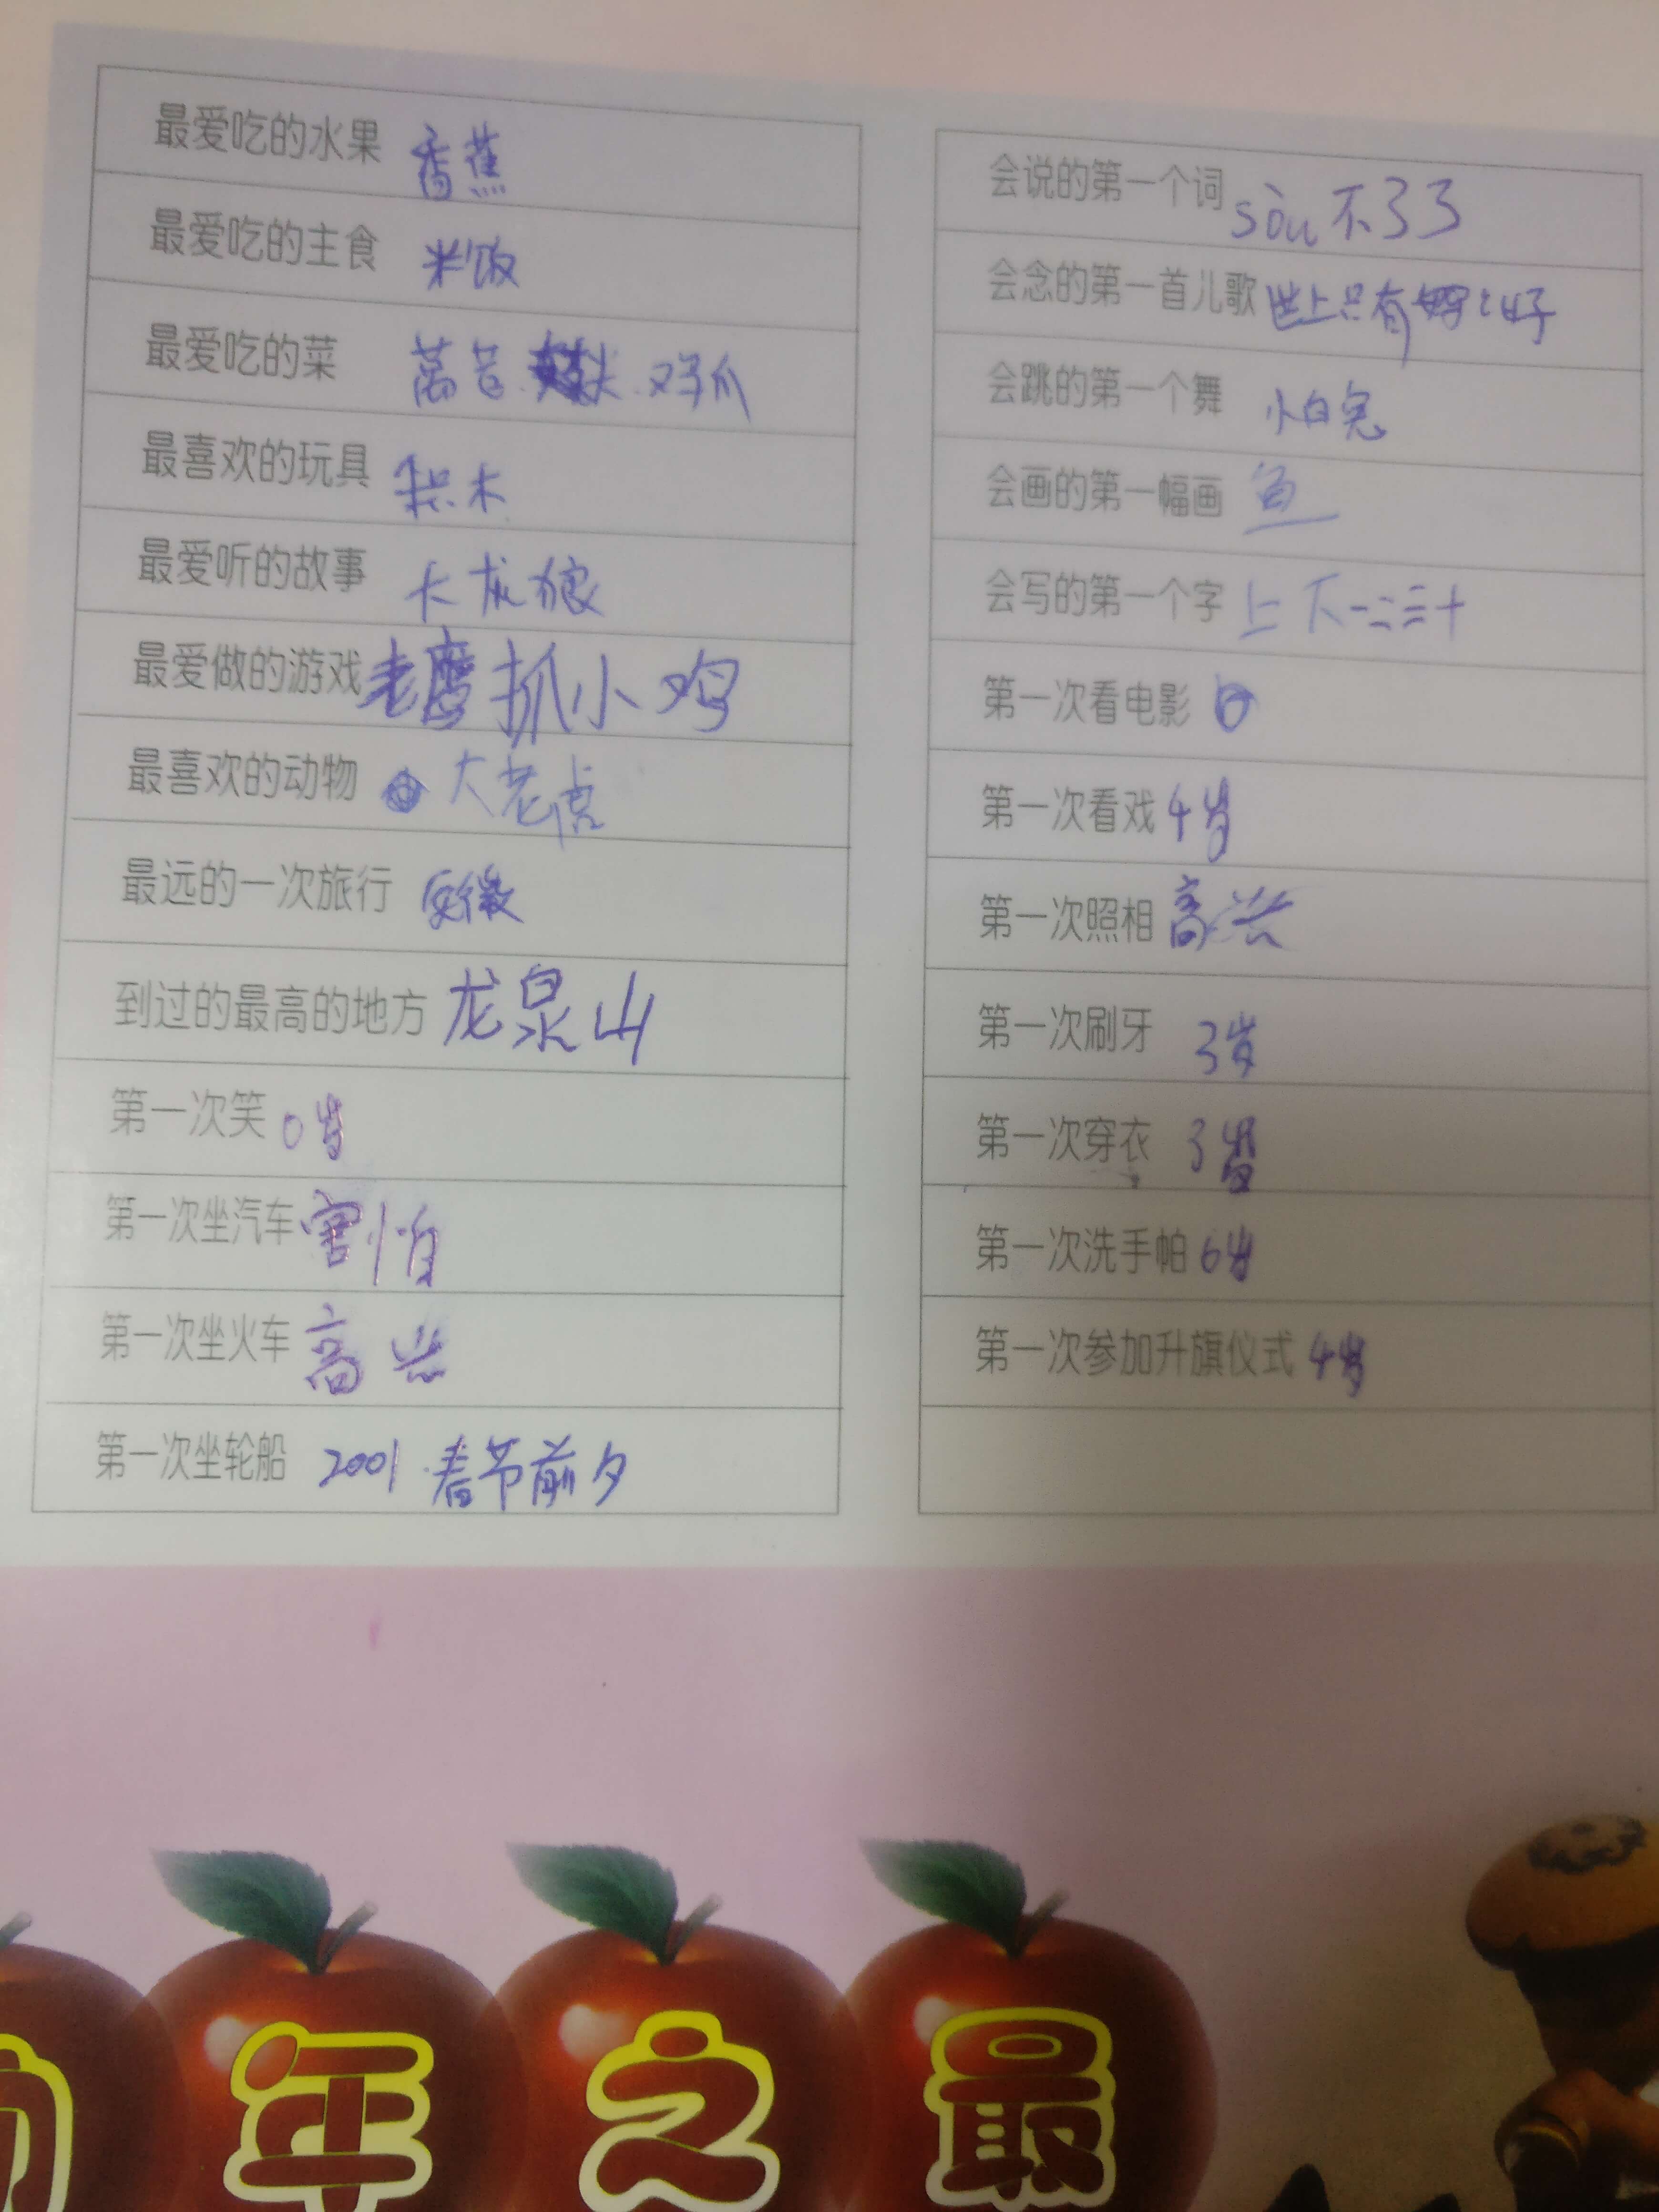 最爱吃的水果 香蕉
最爱吃的主食 米饭
最爱吃的菜 莴苣 鸡爪
最喜欢的玩具 积木
最爱听的故事 大灰狼
最爱做的游戏 老鹰抓小鸡
最喜欢的动物 大老虎
最远的一次旅行 安徽
到过的最高的地方 龙泉山
第一次笑 0岁
第一次坐汽车 害怕
第一次坐火车 高兴
第一次坐轮船 2001.春节前夕
会说的第一个词 sòu不了了
会念的第一首儿歌 世上只有妈妈好
会跳的第一个舞 小白兔
会画的第一幅画 鱼
会写的第一个字 上下一二三十
第一次看电影
第一次看戏 4岁
第一次照相 高兴
第一次刷牙 3岁
第一次穿衣 3岁
第一次洗手帕 6岁
第一次参加升旗仪式 4岁
年之最